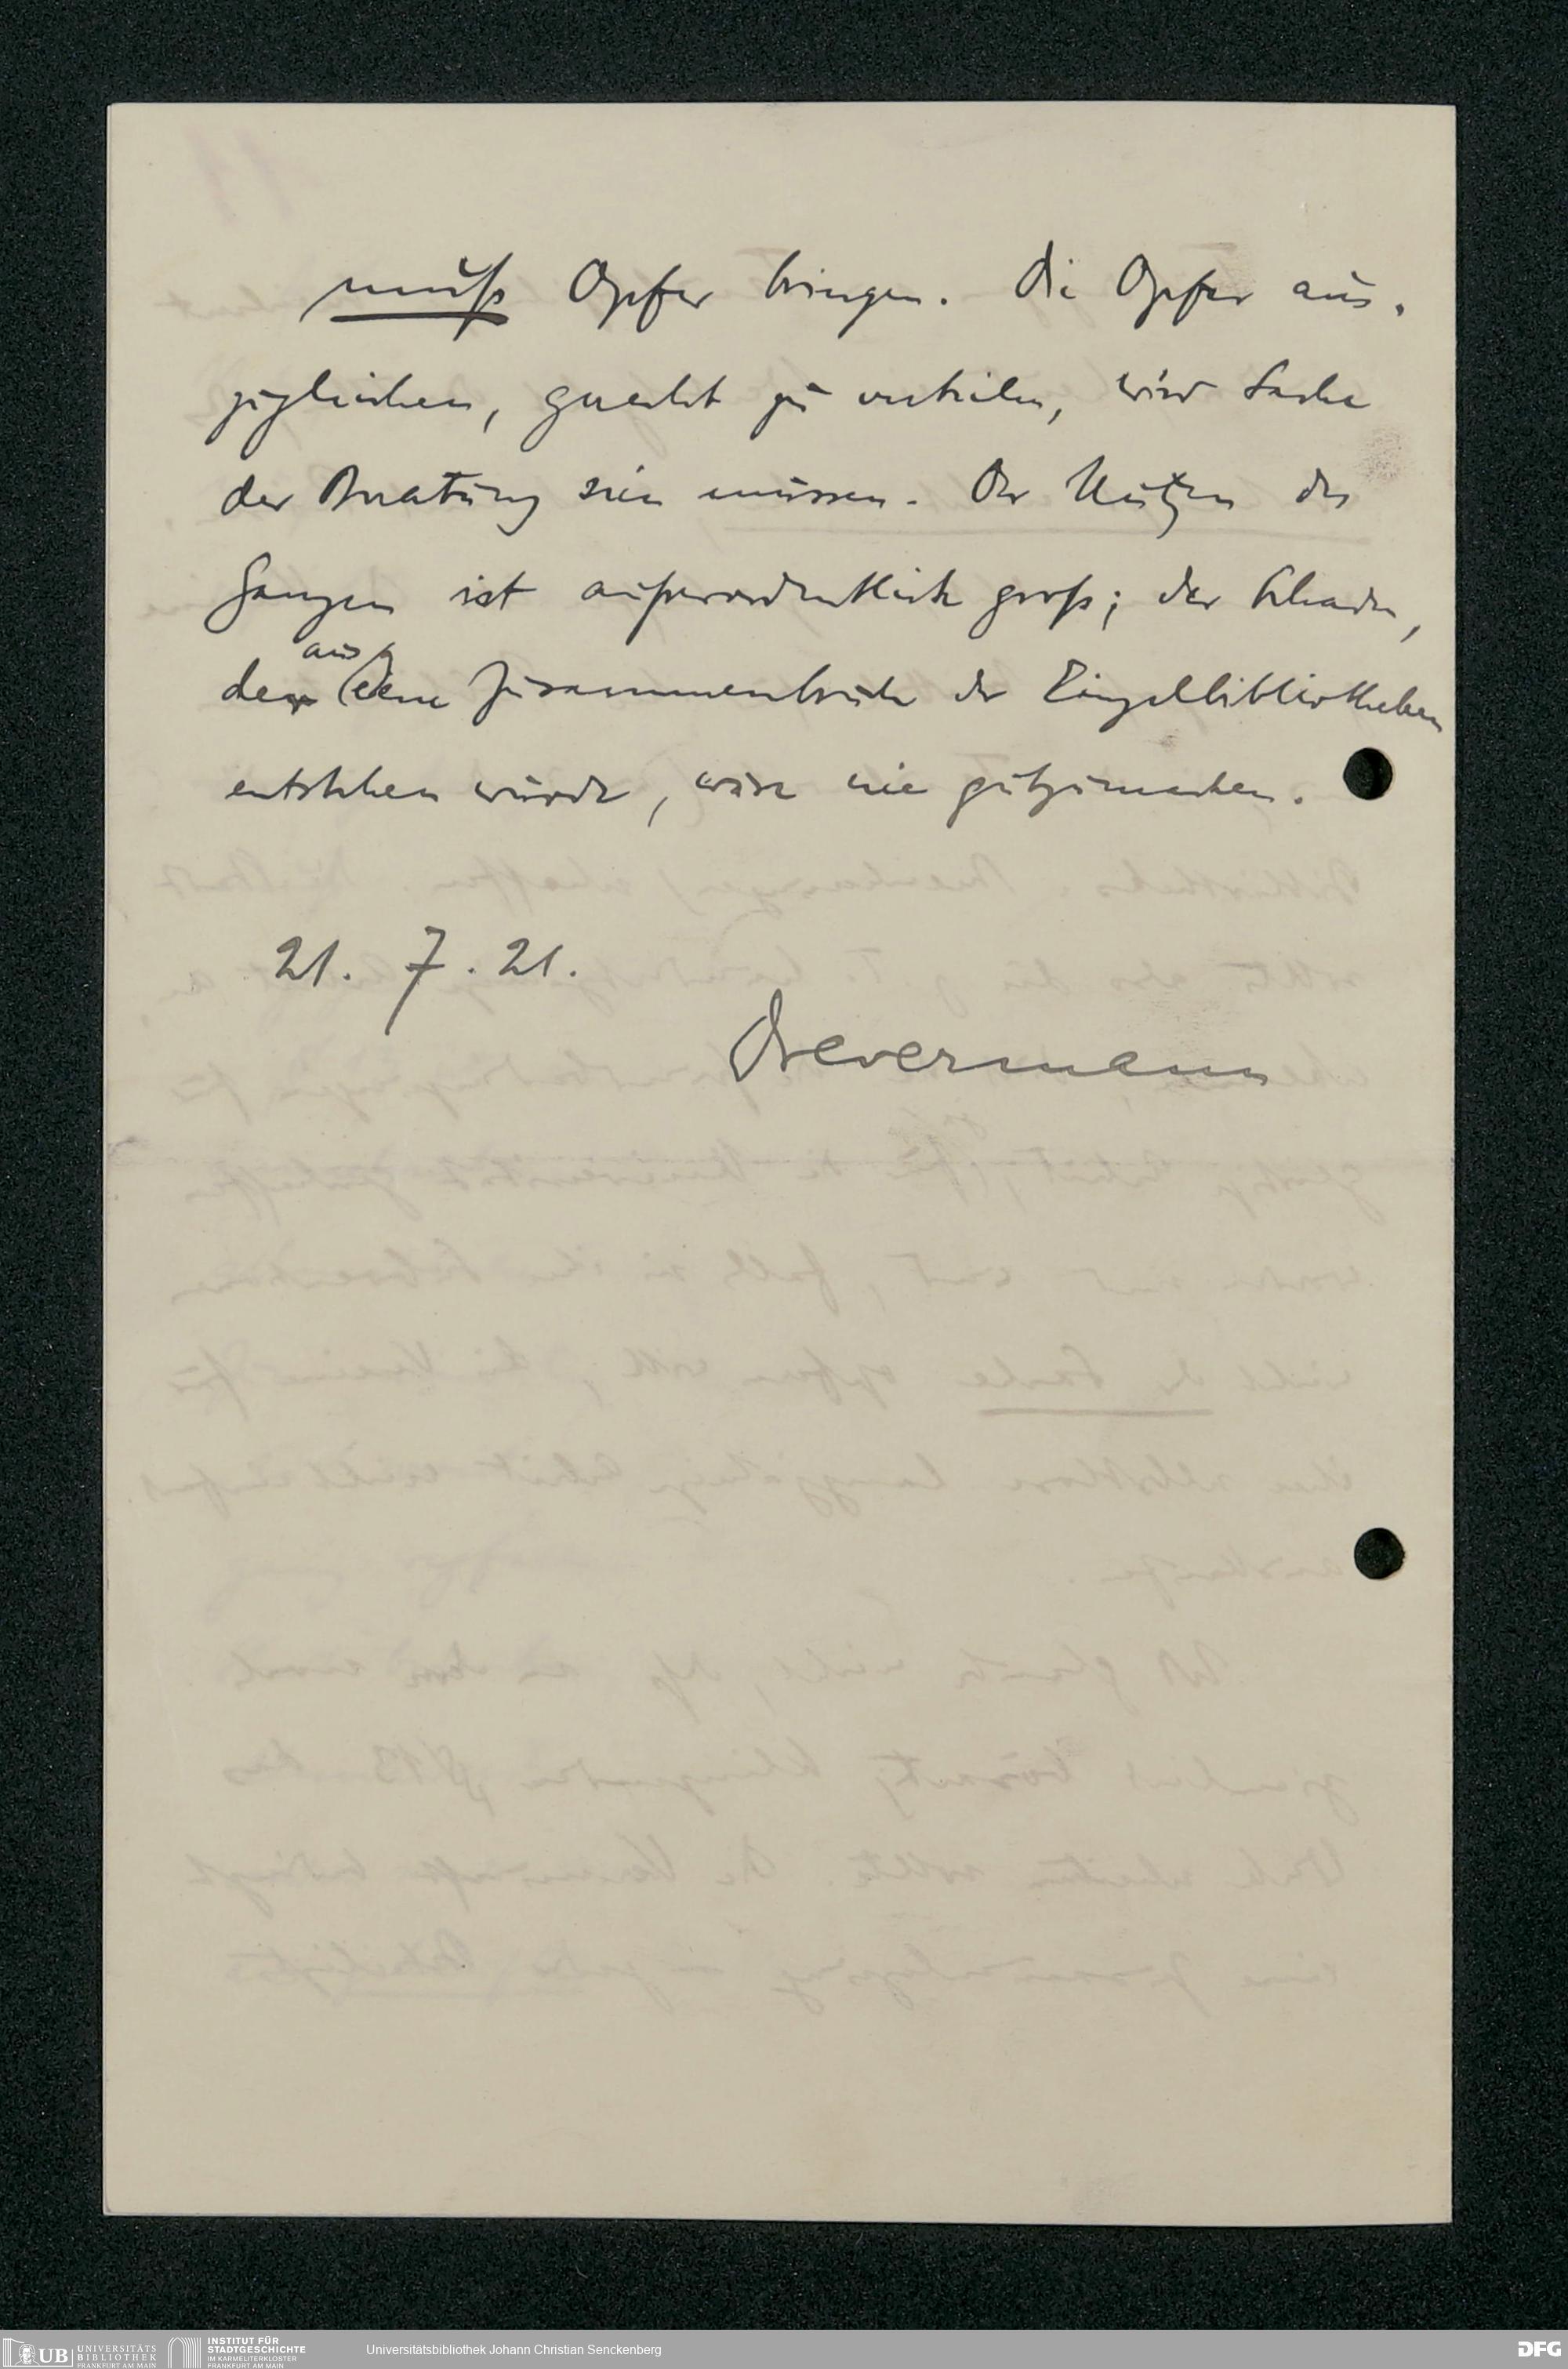 muß Opfer bringen. Die Opfer aus-
zugleichen, gerecht zu verteilen, wird Sache
der Beratung sein müssen. Der Nutzen des
Ganzen ist außerordentlich groß; der Schaden,
der aus dem Zusammenbruch der Einzelbibliotheken
entstehen würde, wäre nie gutzumachen.
21. 7. 21.
Drevermann
UB UNIVERSITÄTS BIBLIOTHEK FRANKFURT AM MAIN
INSTITUT FÜR STADTGESCHICHTE IM KARMELITERKLOSTER FRANKFURT AM MAIN
Universitätsbibliothek Johann Christian Senckenberg
DFG